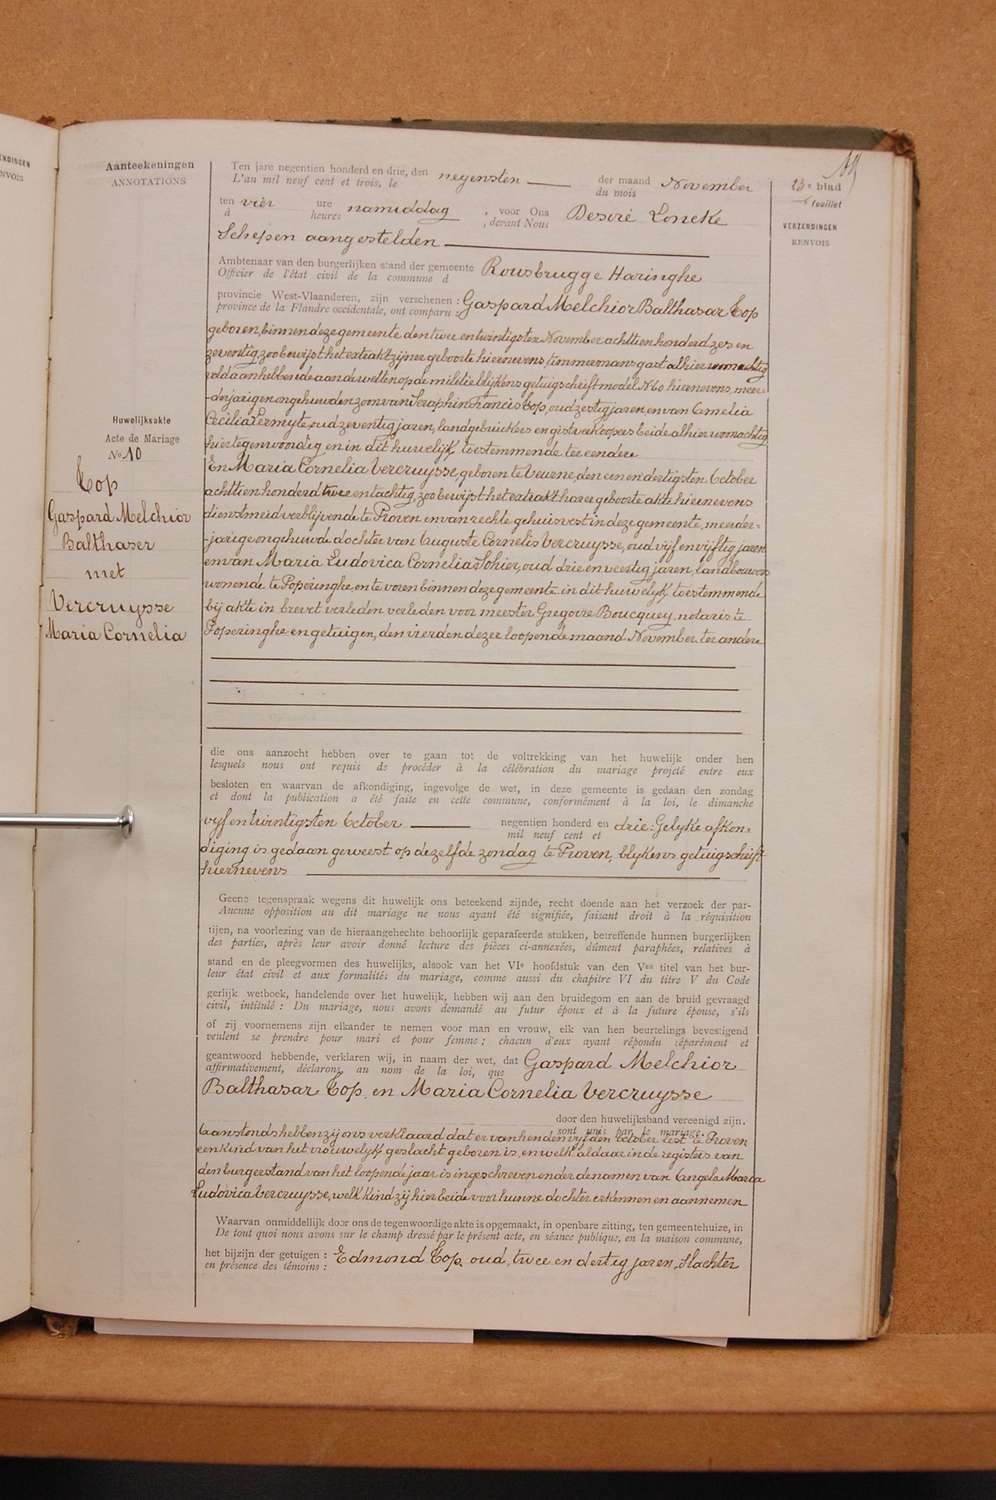 ZENDINGEN
NVOIS
Aanteekeningen
ANNOTATIONS
Huwelijksakte
Acte de Mariage
No 10
Cop
Gaspard Melchior
Balthaser
met
Vercruysse
Maria Cornelia
13e blad
feuillet
VERZENDINGEN
RENVOIS
Ten jare negentien honderd en drie, den negensten der maand November
L'an mil neuf cent et trois, le du mois
ten vier ure namiddag, voor Ons Desiré Loncke
à heures , devant Nous
Schepen aangestelden
Ambtenaar van den burgerlijken stand der gemeente Rousbrugge Haringhe
Officier de l'état civil de la commune d
provincie West-Vlaanderen, zijn verschenen : Gaspard Melchior Balthasar Cop
province de la Flandre occidentale, ont comparu :
geboren, binnen deze gemeente den twee en twintigsten November achttien honderd zes en
zeventig zoo bewijst het extrakt zijner geboorte hiernevens, timmermans gast alhier woonachtig
voldaan hebbende aan de wetten op de militie blijkens getuigschrift model No 6 hiernevens, meer-
-derjarigen ongehuwden zoon van Seraphin Francis Cop, oud zestig jaren, en van Amelia
Cecilia Vermyte, oud zeventig jaren, landgebruikers en gistverkoopers beide alhier woonachtig
hier tegenwoordig, en in dit huwelijk toestemmende ter eendere
En Maria Cornelia Vercruysse, geboren te Veurne, den een en dertigsten October
achttien honderd twee en tachtig, zoo bewijst het extrakt harer geboorte akte hiernevens
dienstmeid verblijvende te Proven en van rechte gehuisvest in deze gemeente, meerder-
-jarige ongehuwde dochter van Auguste Cornelis Vercruysse, oud vijf en vijftig jaren
en van Maria Ludovica Cornelia Sohier, oud drie en veertig jaren, landbouwers
wonende te Poperinghe, en te voren binnen deze gemeente, in dit huwelijk toestemmende
bij akte in brevet verleden verleden voor meester Gregoire Boucquey, notaris te
Poperinghe en getuigen, den vierden dezer loopende maand November ter andere
die ons aanzocht hebben over te gaan tot de voltrekking van het huwelijk onder hen
lesquels nous ont requis de procéder à la célébration du mariage projeté entre eux
besloten en waarvan de afkondiging, ingevolge de wet, in deze gemeente is gedaan den zondag
et dont la publication a été faite en cette commune, conformément à la loi, le dimanche
vijf en twintigsten October negentien honderd en drie. Gelyke afkon-
mil neuf cent et
diging is gedaan geweest op dezelfde zondag te Proven, blykens getuigschrift
hiernevens
Geene tegenspraak wegens dit huwelijk ons beteekend zijnde, recht doende aan het verzoek der par-
Aucune opposition au dit mariage ne nous ayant été signifiée, faisant droit à la réquisition
tijen, na voorlezing van de hieraangehechte behoorlijk geparafeerde stukken, betreffende hunnen burgerlijken
des parties, après leur avoir donné lecture des pièces ci-annexées, dûment paraphées, relatives à
stand en de pleegvormen des huwelijks, alsook van het VIe hoofdstuk van den Ven titel van het bur-
leur état civil et aux formalités du mariage, comme aussi du chapitre VI du titre V du Code
gerlijk wetboek, handelende over het huwelijk, hebben wij aan den bruidegom en aan de bruid gevraagd
civil, intitulé : Du mariage, nous avons demandé au futur époux et à la future épouse, s'ils
of zij voornemens zijn elkander te nemen voor man en vrouw, elk van hen beurtelings bevestigend
veulent se prendre pour mari et pour femme ; chacun d'eux ayant répondu séparément et
geantwoord hebbende, verklaren wij, in naam der wet, dat Gaspard Melchior
affirmativement, déclarons, au nom de la loi, que
Balthasar Cop, en Maria Cornelia Vercruysse
door den huwelijksband vereenigd zijn.
sont unis par le mariage.
Aanstonds hebben zij ons verklaard dat er van hen den vijfden October lest te Proven
een kind van het vrouwelijk geslacht geboren is, en welk aldaar in de registers van
den burgerstand van het loopende jaar is ingeschreven onder de namen van Angela Maria
Ludovica Vercruysse, welk kind zij hier beide voor hunne dochter erkennen en aannemen
Waarvan onmiddellijk door ons de tegenwoordige akte is opgemaakt, in openbare zitting, ten gemeentehuize, in
De tout quoi nous avons sur le champ dressé par le présent acte, en séance publique, en la maison commune,
het bijzijn der getuigen : Edmond Cop, oud, twee en dertig jaren, Slachter
en présence des témoins :